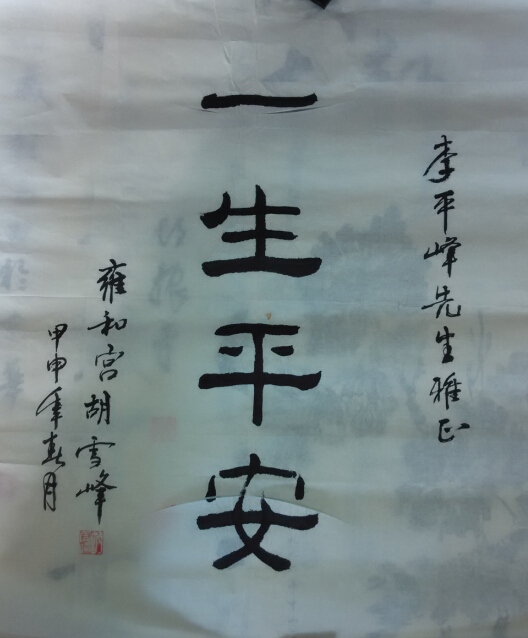 李平峰先生雅正
一生平安
雍和宫胡雪峰
甲申年春月